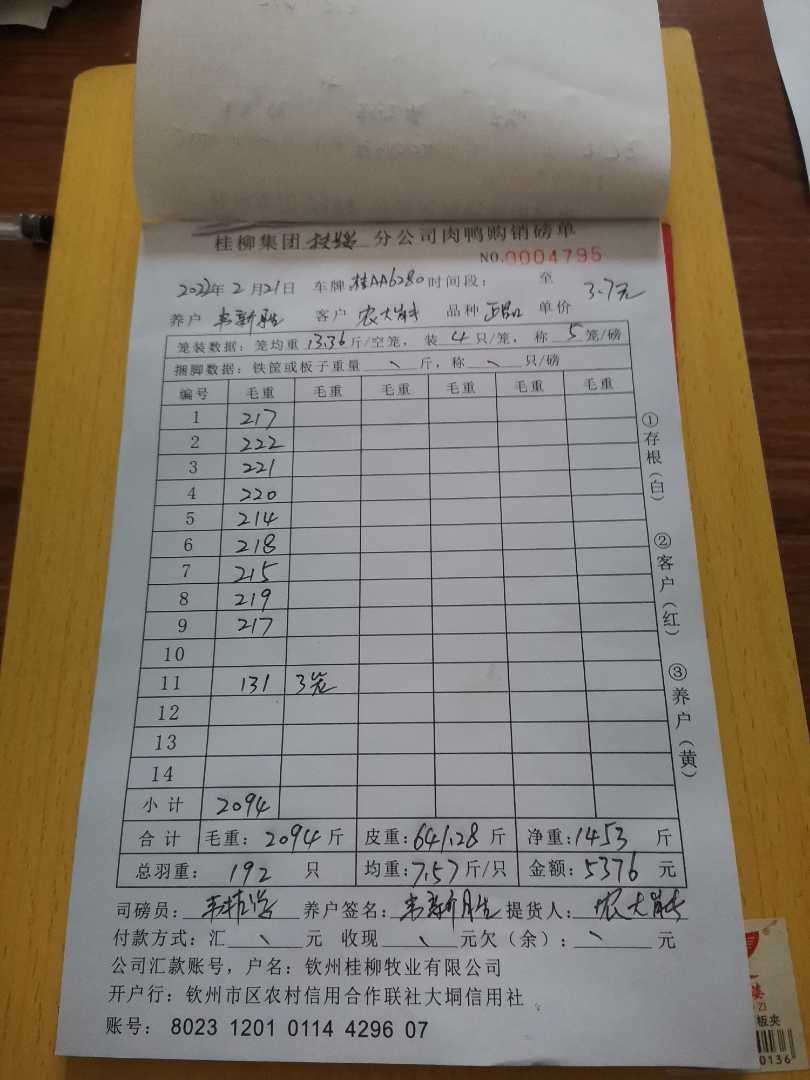 桂柳集团 分公司肉鸭购销磅单
NO.0004795
2022年2月21日 车牌:桂AA6280 时间段: 至
养户 韦新胜 客户 农大 品种 正品 单价 3.7元
笼装数据:笼均重 13.36 斤/空笼,装 4 只/笼,称 5 笼/磅
捆脚数据:铁筐或板子重量 斤,称 只/磅
编号 毛重 毛重 毛重 毛重 毛重 毛重
1 217
2 222
3 221
4 220
5 214
6 218
7 215
8 219
9 217
10
11 131 3笼
12
13
14
小计 2094
合计 毛重:2094斤 皮重:641.28斤 净重:1453斤
总羽重:192只 均重:7.57斤/只 金额:5376元
司磅员: 养户签名:韦新胜 提货人:农大
付款方式:汇 元 收现 元欠(余): 元
公司汇款账号,户名:钦州桂柳牧业有限公司
开户行:钦州市区农村信用合作联社大垌信用社
账号:8023 1201 0114 4296 07
①存根(白)
②客户(红)
③养户(黄)
板夹
0136